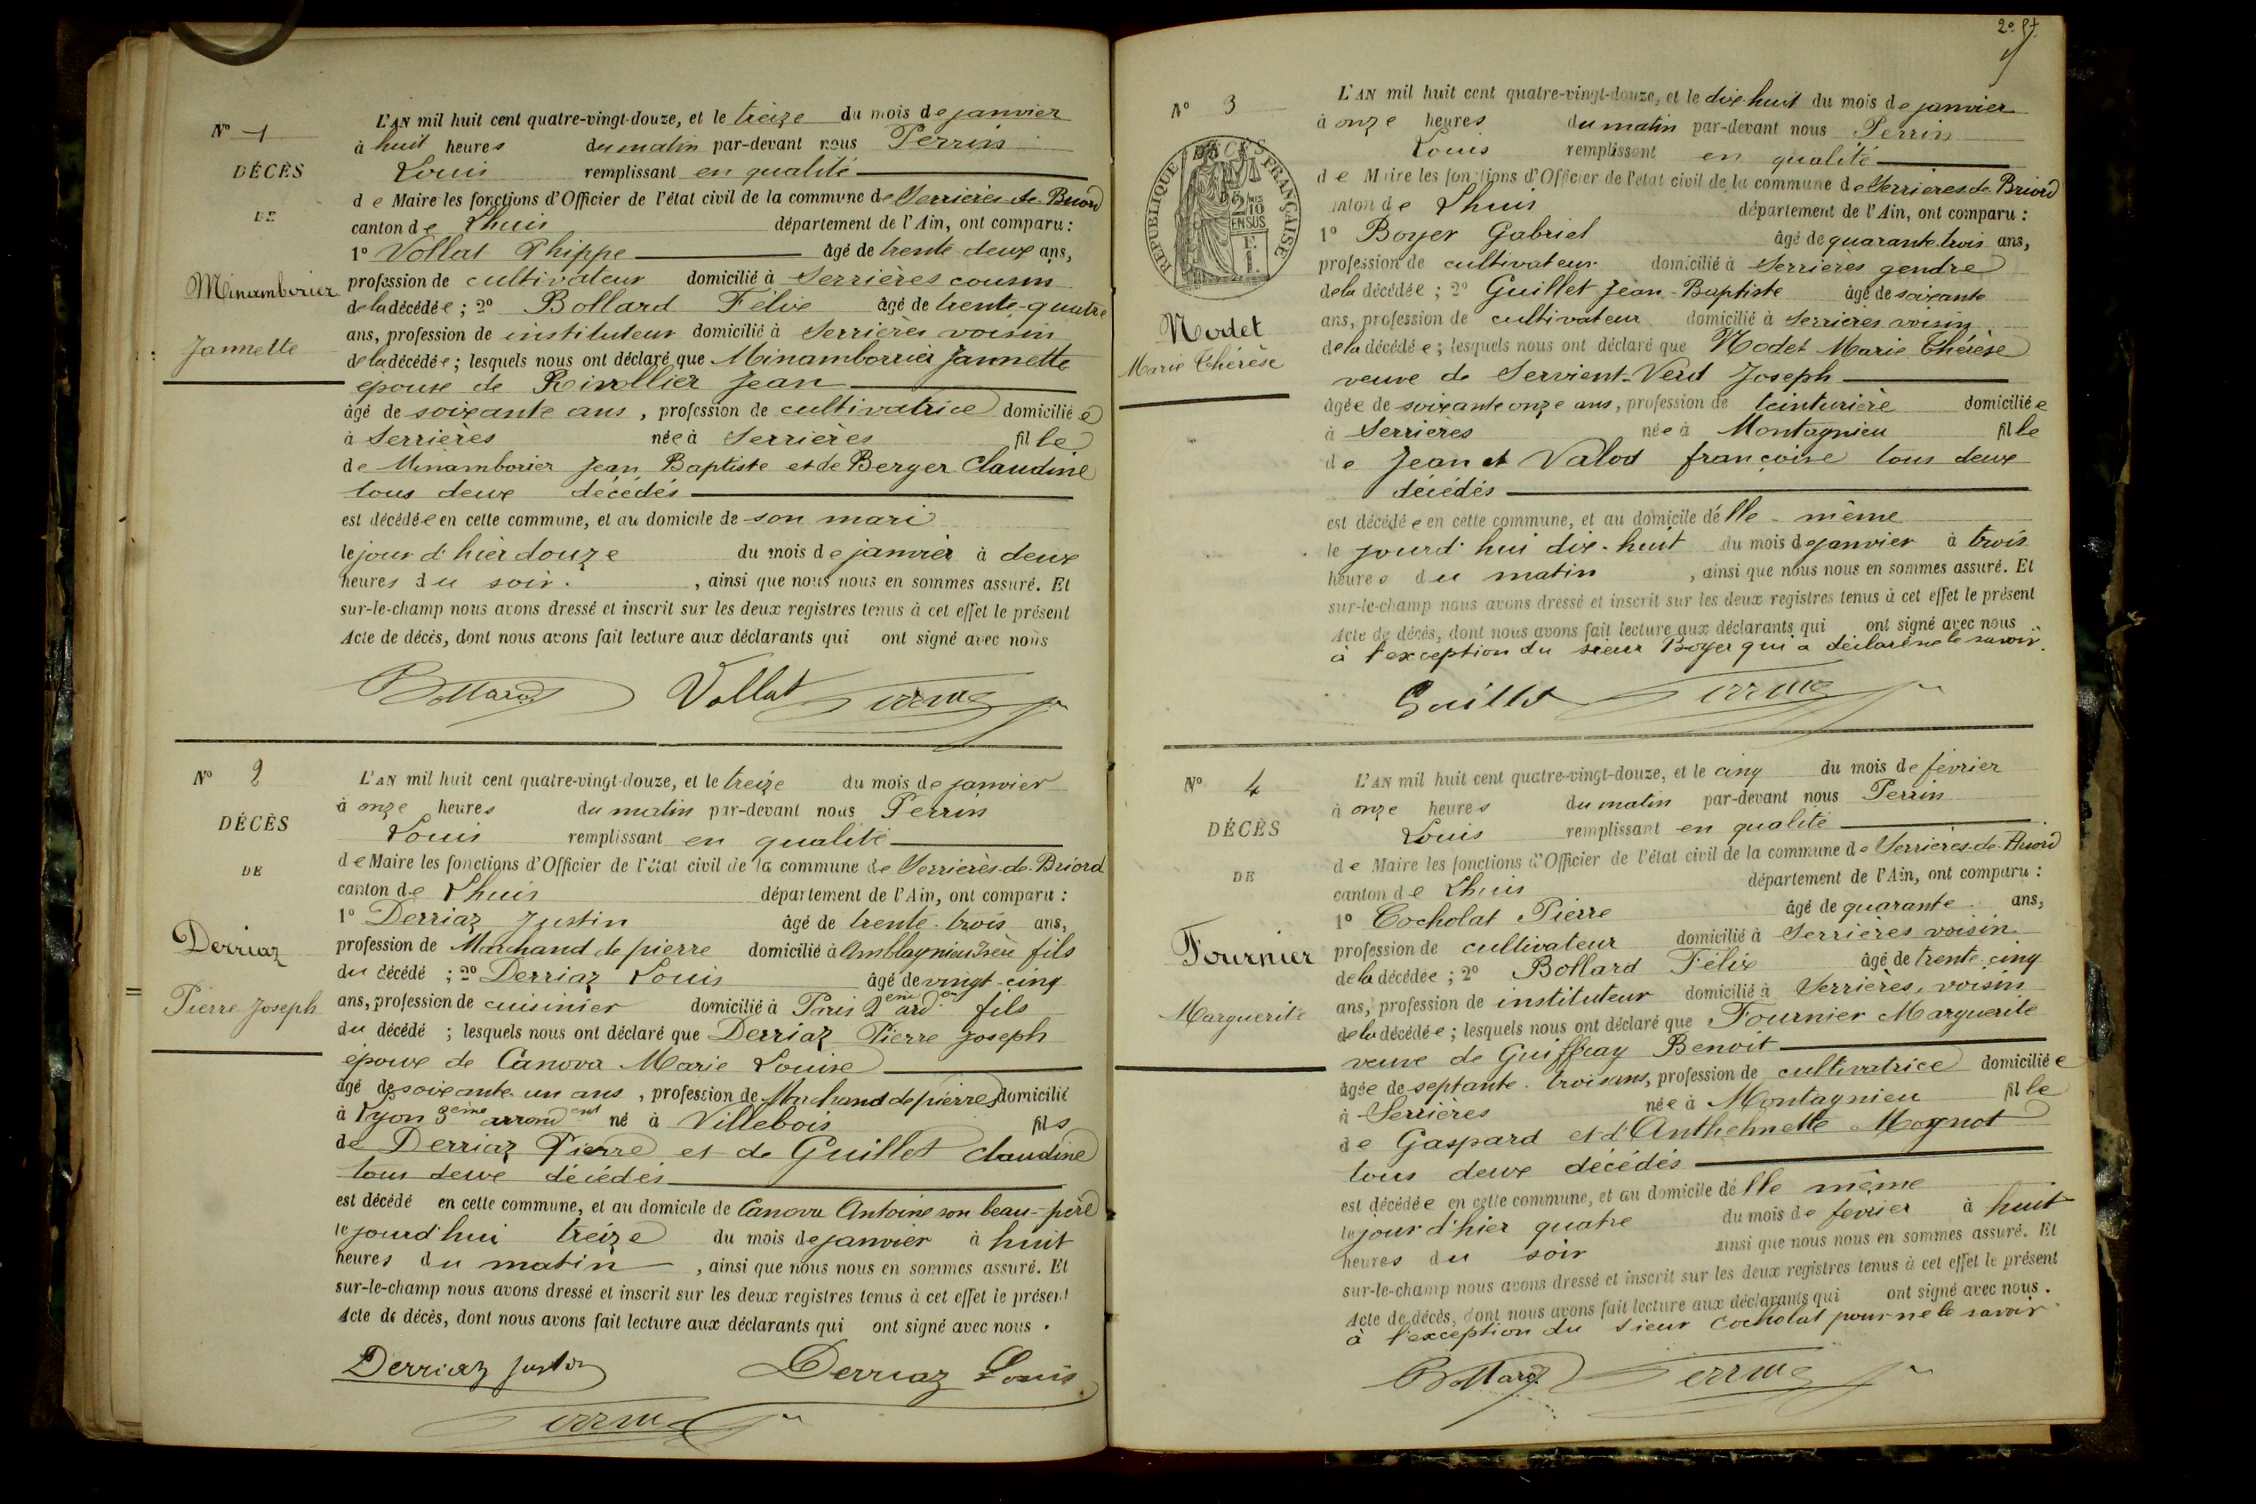 N° 1
DÉCÈS
DE
Minamborier
Jannette
L'AN mil huit cent quatre-vingt-douze, et le treize du mois de janvier
à huit heures du matin par-devant nous Perrin
Louis remplissant en qualité
de Maire les fonctions d'Officier de l'état civil de la commune de Serrières de Briord
canton de Lhuis département de l'Ain, ont comparu :
1° Vollat Phippe âgé de trente deux ans,
profession de cultivateur domicilié à Serrières cousin
de la décédée ; 2° Bollard Félix âgé de trente-quatre
ans, profession de instituteur domicilié à Serrières voisin
de la décédée ; lesquels nous ont déclaré que Minamborrier Jannette
épouse de Rivollier Jean
âgé de soixante ans, profession de cultivatrice domiciliée
à Serrières née à Serrières fille
de Minamborier Jean Baptiste et de Berger Claudine
tous deux décédés
est décédée en cette commune, et au domicile de son mari
le jour d'hier douze du mois de janvier à deux
heures du soir. , ainsi que nous nous en sommes assuré. Et
sur-le-champ nous avons dressé et inscrit sur les deux registres tenus à cet effet le présent
Acte de décès, dont nous avons fait lecture aux déclarants qui ont signé avec nous
Bollard Vollat Perrin
N° 2
DÉCÈS
DE
Derriaz
Pierre Joseph
L'AN mil huit cent quatre-vingt-douze, et le treize du mois de janvier
à onze heures du matin par-devant nous Perrin
Louis remplissant en qualité
de Maire les fonctions d'Officier de l'état civil de la commune de Serrières-de-Briord
canton de Lhuis département de l'Ain, ont comparu :
1° Derriaz Justin âgé de trente-trois ans,
profession de Marchand de pierre domicilié à Amblagnieu Isère fils
du décédé ; 2° Derriaz Louis âgé de vingt-cinq
ans, profession de cuisinier domicilié à Paris 2eme ard fils
du décédé ; lesquels nous ont déclaré que Derriaz Pierre Joseph
époux de Canova Marie Louise
âgé de soixante-un ans, profession de Marchand de pierres domicilié
à Lyon 3ème arrondent né à Villebois fils
de Derriaz Pierre et de Guillet Claudine
tous deux décédés
est décédé en cette commune, et au domicile de Canova Antoine son beau-père
le jourd'hui treize du mois de janvier à huit
heures du matin , ainsi que nous nous en sommes assuré. Et
sur-le-champ nous avons dressé et inscrit sur les deux registres tenus à cet effet le présent
Acte de décès, dont nous avons fait lecture aux déclarants qui ont signé avec nous .
Derriaz Justin Derriaz Louis
Perrin
N° 3
RÉPUBLIQUE FRANÇAISE
2/10 EN SUS
DÉCÈS
Nodet
Marie Thérèse
L'AN mil huit cent quatre-vingt-douze, et le dix-huit du mois de janvier
à onze heures du matin par-devant nous Perrin
Louis remplissant en qualité
de Maire les fonctions d'Officier de l'état civil de la commune de Serrières-de Briord
canton de Lhuis département de l'Ain, ont comparu :
1° Boyer Gabriel âgé de quarante trois ans,
profession de cultivateur domicilié à Serrières gendre
de la décédée ; 2° Guillet Jean-Baptiste âgé de soixante
ans, profession de cultivateur domicilié à Serrières voisin
de la décédée ; lesquels nous ont déclaré que Nodet Marie Thérèse
veuve de Servient-Verd Joseph
âgée de soixante onze ans, profession de teinturière domiciliée
à Serrières née à Montagnieu fille
de Jean et Valod françoise tous deux
décédés
est décédée en cette commune, et au domicile délle-même
le jourd'hui dix-huit du mois de janvier à trois
heures du matin , ainsi que nous nous en sommes assuré. Et
sur-le-champ nous avons dressé et inscrit sur les deux registres tenus à cet effet le présent
Acte de décès, dont nous avons fait lecture aux déclarants qui ont signé avec nous
à l'exception du sieur Boyer qui a déclaré ne le savoir.
Guillet Perrin
N° 4
DÉCÈS
DE
Fournier
Marguerite
L'AN mil huit cent quatre-vingt-douze, et le cinq du mois de février
à onze heures du matin par-devant nous Perrin
Louis remplissant en qualité
de Maire les fonctions d'Officier de l'état civil de la commune de Serrières-de-Briord
canton de Lhuis département de l'Ain, ont comparu :
1° Cocholat Pierre âgé de quarante ans,
profession de cultivateur domicilié à Serrières voisin
de la décédée ; 2° Bollard Félix âgé de trente-cinq
ans, profession de instituteur domicilié à Serrières, voisin
de la décédée ; lesquels nous ont déclaré que Fournier Marguerite
veuve de Guiffray Benoit
âgée de septante-trois ans, profession de cultivatrice domiciliée
à Serrières née à Montagnieu fille
de Gaspard et d'Anthelmette Moynot
tous deux décédés
est décédée en cette commune, et au domicile délle même
le jour d'hier quatre du mois de février à huit
heures du soir ainsi que nous nous en sommes assuré. Et
sur-le-champ nous avons dressé et inscrit sur les deux registres tenus à cet effet le présent
Acte de décès, dont nous avons fait lecture aux déclarants qui ont signé avec nous .
à l'exception du sieur Cocholat pour ne le savoir
Bollard Perrin